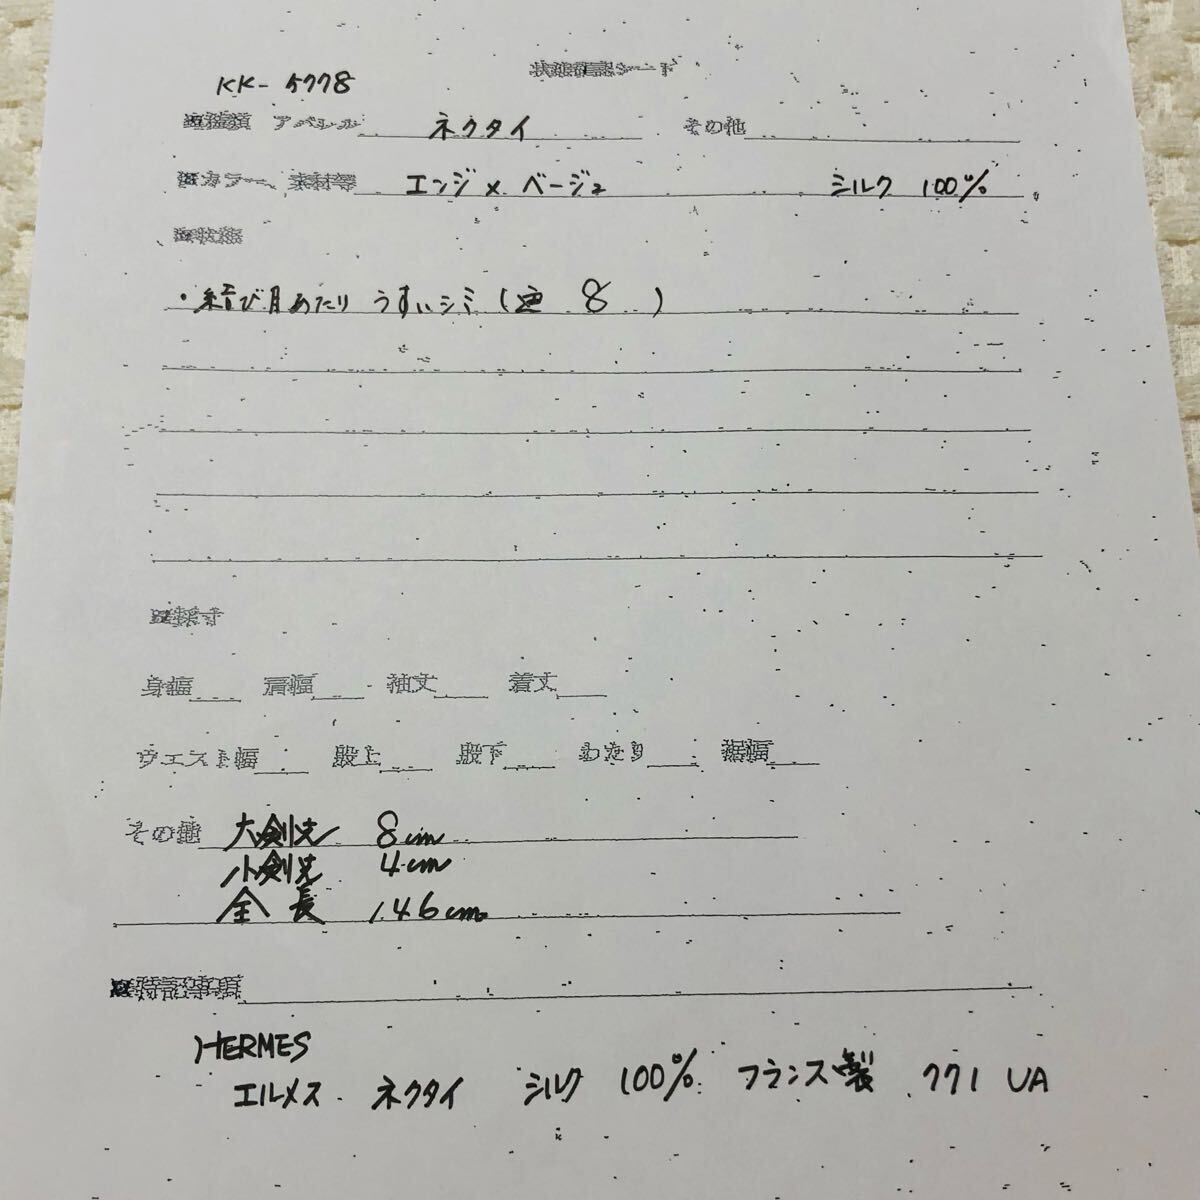 状態確認シート
KK-5778
■種類 アパレル ネクタイ その他
■カラー、素材等 エンジ×ベージュ シルク 100%
■状態
・結び目あたり うすいシミ ( 8 )
■採寸
身幅 肩幅 袖丈 着丈
ウエスト幅 股上 股下 わたり 裾幅
その他 大剣先 8cm
小剣先 4cm
全長 146cm
■特記事項
HERMES
エルメス ネクタイ シルク 100% フランス製 771 UA